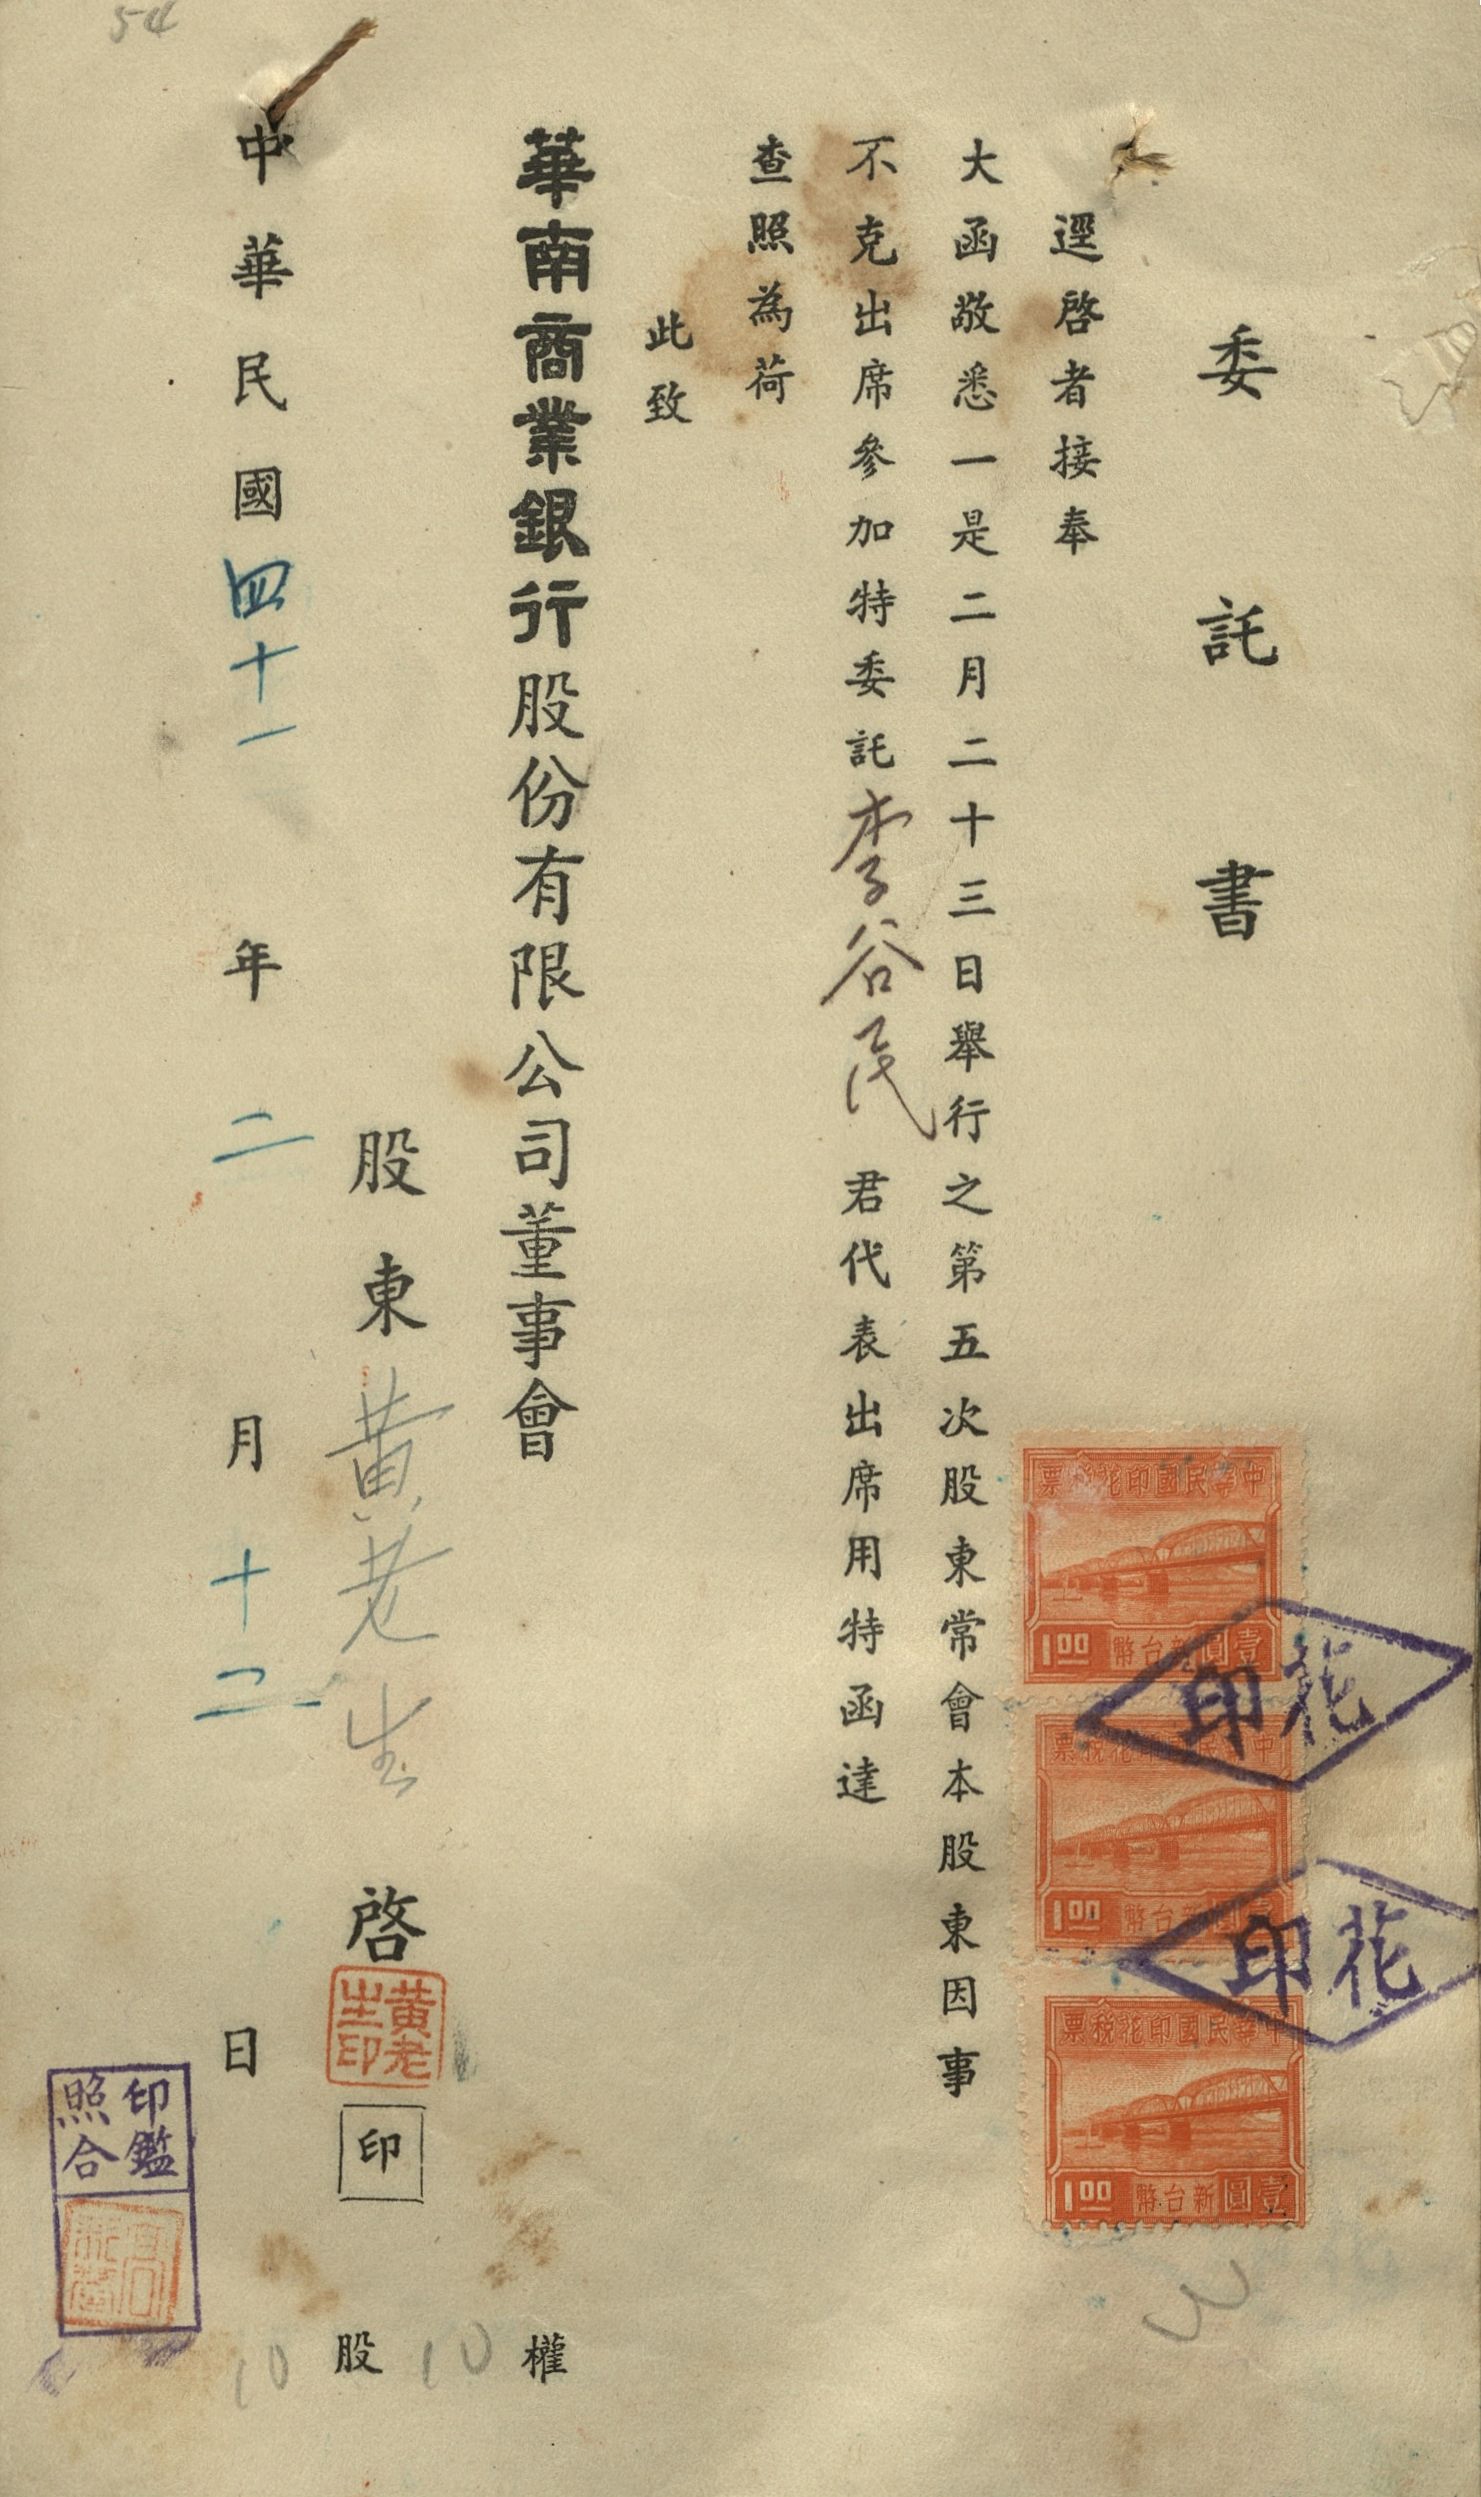 委託書
逕啓者接奉
大函敬悉一是二月二十三日舉行之第五次股東常會本股東因事
不克出席參加特委託李谷民君代表出席用特函達
查照為荷
此致
華南商業銀行股份有限公司董事會
股東黃老生啓
黃老生印
印
中華民國四十一年二月十二日
10股10權
印鑑照合
中華民國印花稅票
1.00 新台幣壹圓
中華民國印花稅票
1.00 新台幣壹圓
中華民國印花稅票
1.00 新台幣壹圓
印花
印花
3
54